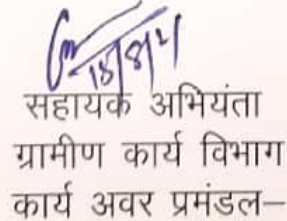 18/8/21
सहायक अभियंता
ग्रामीण कार्य विभाग
कार्य अवर प्रमंडल–